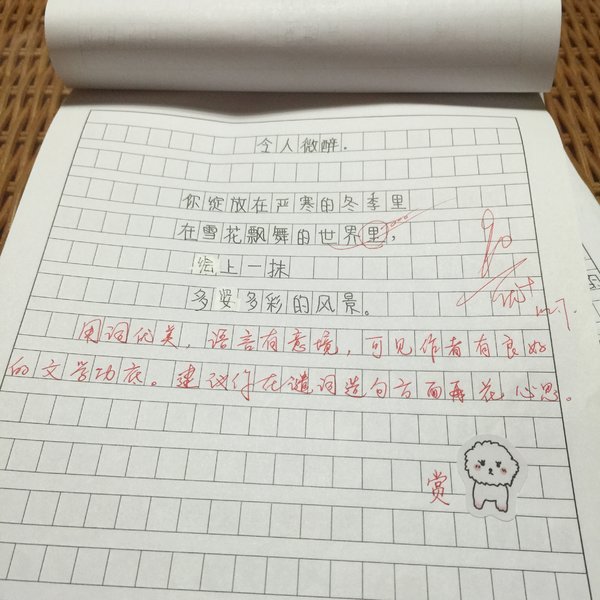 令人微醉。
你绽放在严寒的冬季里
在雪花飘舞的世界里,
绘上一抹
多姿多彩的风景。
90
优+
12.7.
用词优美,语言有意境,可见作者有良好
的文学功底。建议你在遣词造句方面再花心思。
赏